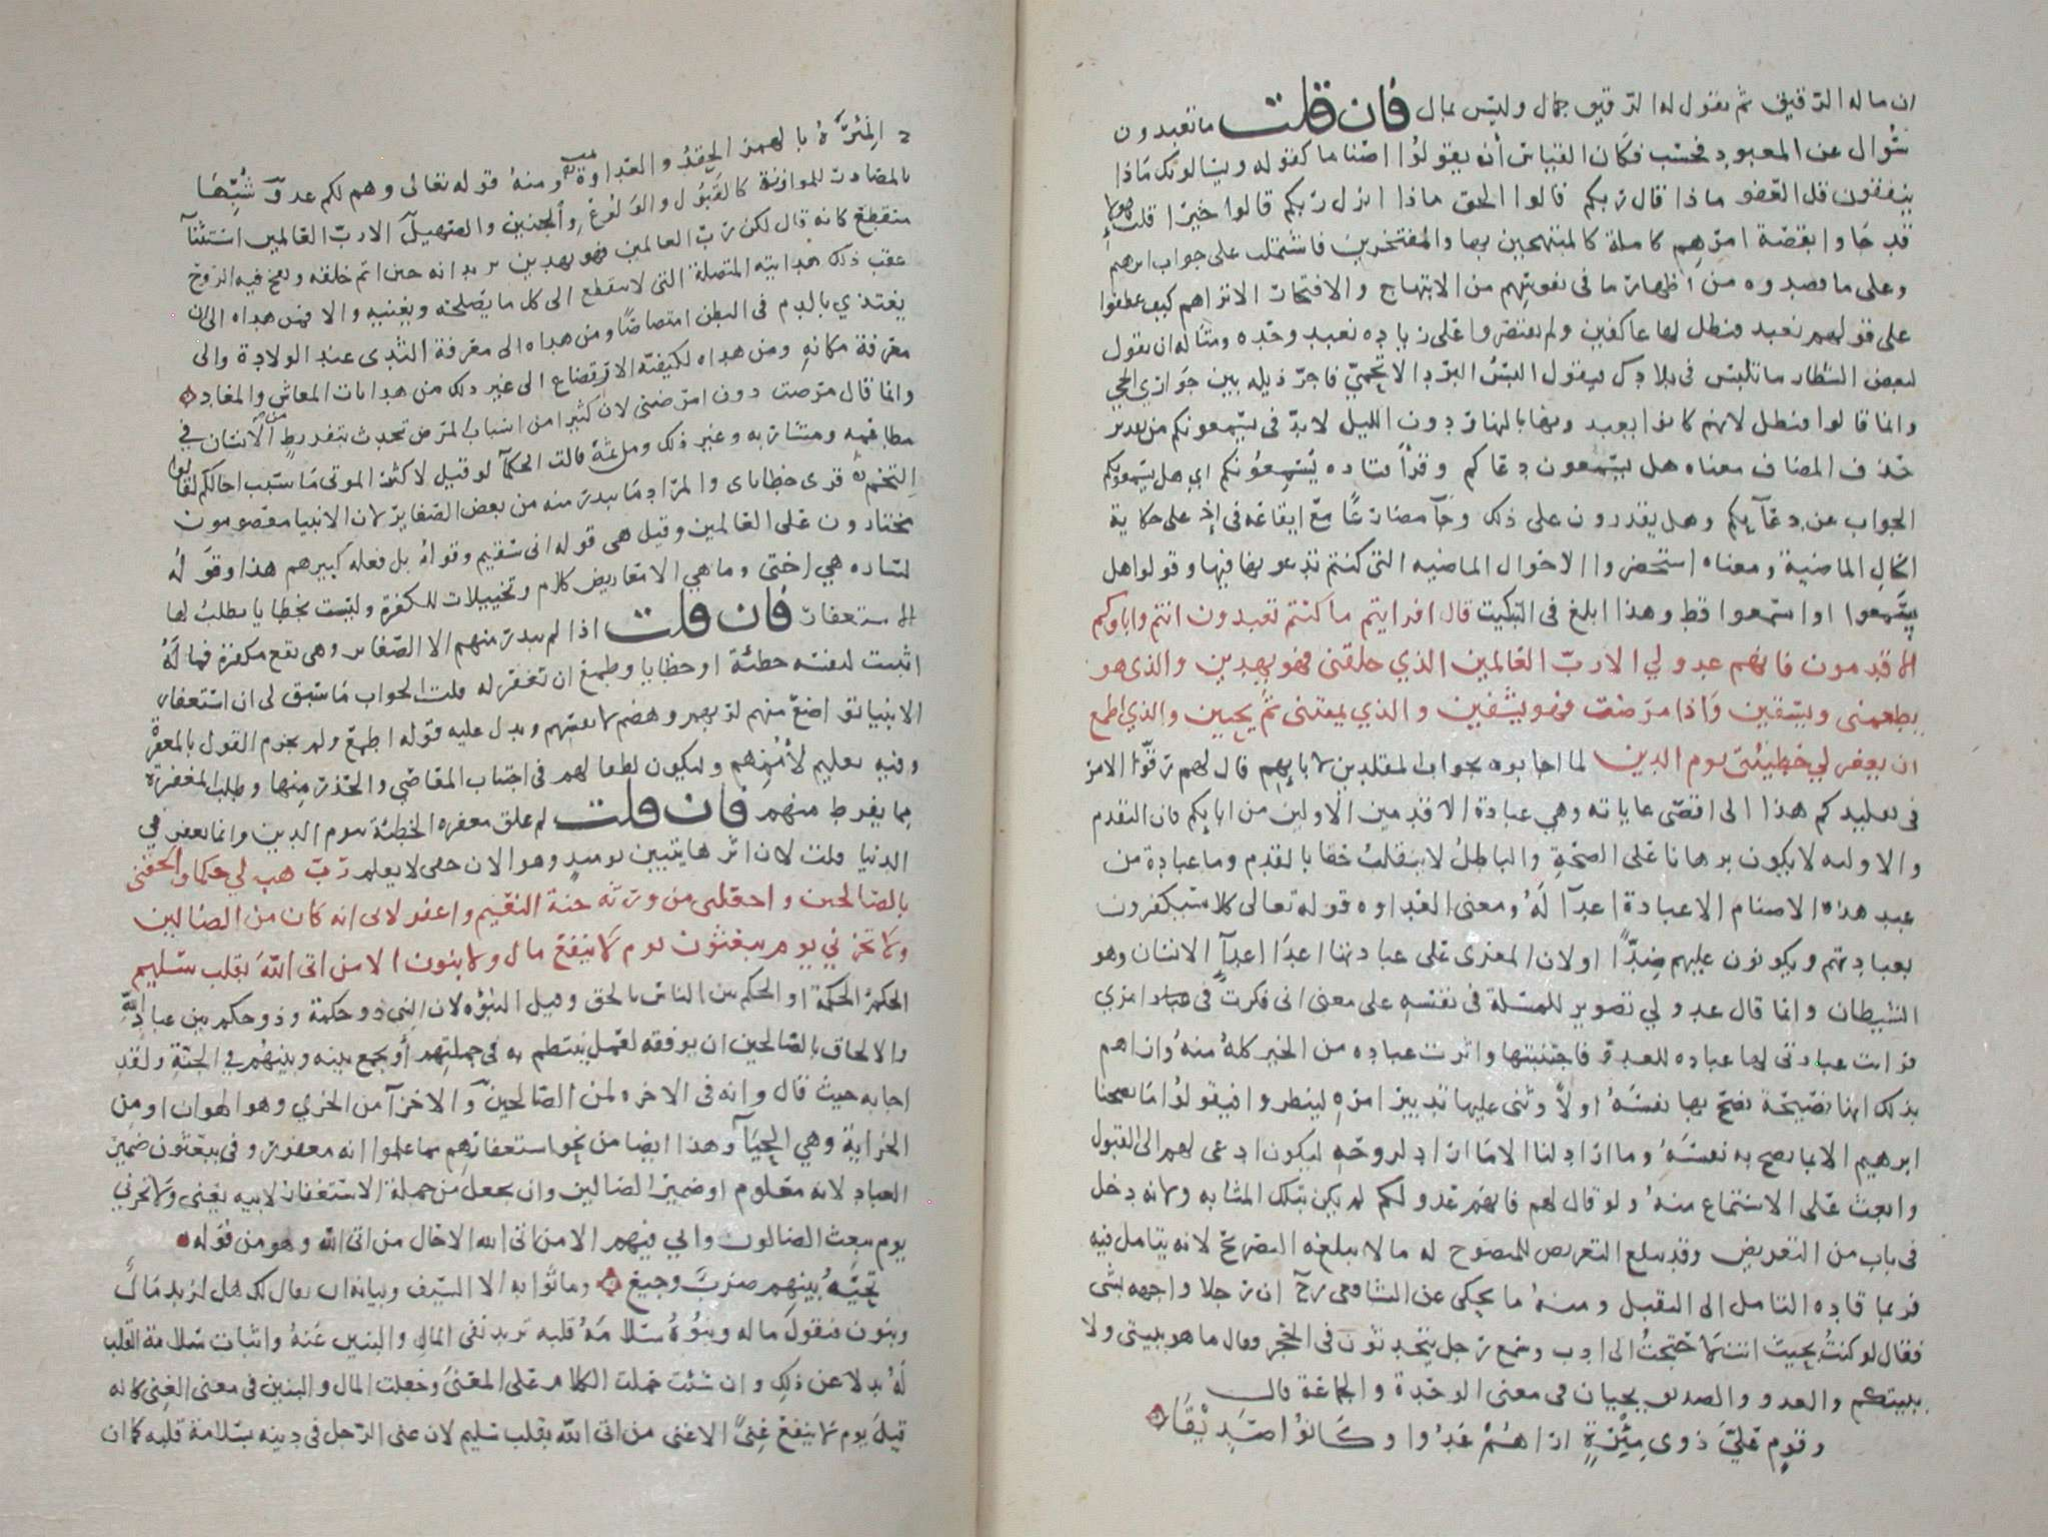 ان ماله الرقيق ثم يقول له الرقيق جمال وليس بمال فان قلت ما تعبدون
سوال عن المعبود فحسب فكان القياس أن يقولوا اصناما كقوله ويسالونك ماذا
ينفقون قل العفو ماذا قال ربكم قالوا الحق ماذا انزل ربكم قالوا خيرا قلت هولا
قد جاوا بقصة امرهم كاملة كالمبتهجين بها والمفتخرين فاشتملت على جواب ابرهيم
وعلى ما قصدوه من اظهار ما في نفوسهم من الابتهاج والافتخار الا تراهم كيف عطفوا
على قولهم نعبد فنظل لها عاكفين ولم يقتصروا على زياده نعبد وحده ومثاله ان تقول
لبعض الشطار ما تلبس في بلادك فيقول البس البرد الاتحمي فاجر ذيله بين جواري الحي
وانما قالوا فنظل لانهم كانوا يعبدونها بالنهار دون الليل لابد في يسمعونكم من تقدير
حذف المضاف معناه هل يسمعون دعاكم وقرأ قتاده يُسمعونكم اي هل يسمعونكم
الجواب عن دعآيكم وهل يقدرون على ذلك وجآ مضارعًا مع ايقاعه في إذ على حكاية
الحال الماضية ومعناه استحضروا الاحوال الماضيه التي كنتم تدعونها فيها وقولوا هل
يسمعوا او اسمعوا قط وهذا ابلغ في التبكيت قال افرايتم ما كنتم تعبدون انتم واباوكم
الاقدمون فانهم عدو لي الا ربّ العالمين الذي خلقني فهو يهدين والذي هو
يطعمني ويسقين وَاذا مرضت فهو يشفين والذي يميتني ثم يحيين والذي اطمع
ان يغفر لي خطيئتي يوم الدين لما اجابوه بجواب المقلدين لابايهم قال لهم رقوا امر
في تقليدكم هذا الى اقصى غاياته وهي عبادة الاقدمين الاولين من ابايكم فان التقدم
والاوليه لا يكون برهانا على الصحة والباطل لا ينقلب حقا بالقدم وما عبادة من
عبد هذه الاصنام الا عبادة اعدآ لَهُ ومعنى العداوه قوله تعالى كلا سيكفرون
بعبادتهم ويكونون عليهم ضِدًّا اولان المغرى على عبادتها اعدَا اعدآ الانسان وهو
الشيطان وانما قال عدو لي تصوير للمسلة في نفسه على معنى انى فكرت في امري
فرايت عبادتي لها عباده للعدوّ فاجتنبتها واثرت عباده من الخير كلهُ منهُ واراهم
بذلك انها نصيحة نصح بها نفسَهُ اولاً وبنى عليها تدبير امره لينظروا فيقولوا ما نصحنا
ابرهيم الا بما نصح به نفسَهُ وما اراد لنا الا ما اراد لروحه ليكون ادعى لهم الى القبول
وابعث على الاستماع منهُ ولو قال لهم فانهم عدو لكم لم يكن بتلك المثابه ولانه دخل
في باب من التعريض وقد يبلغ التعريض للمنصوح له ما لا يبلغه التصريح لانه يتامل فيه
فربما قاده التامل الى التقبل ومنهُ ما يحكى عن الشافعى ان رجلا واجهه بشى
فقال لو كنتُ بحيث انت لاحتجتُ الى ادب وسمع رجل يتحدثون في الحجر فقال ما هو ببيتي ولا
ببيتكم والعدو والصديق يجيان في معنى الوحدة والجماعة قال
وقومٍ عَليّ ذوى مِئْرَةٍ اراهُمْ عَدُوا وكَانوُا صَدِيْقَا
المِئرَةُ بالهمز الحِقدُ والعداوة ومنهُ قوله تعالى وهم لكم عدوّ شُبِّهَا
بالمصادر للموازنة كالقبول والولوع والحنين والصهيل الا ربّ العالمين استثنآ
منقطع كانه قال لكن ربّ العالمين فهو يهدين يريد انه حين اتم خلقه ونفخ فيه الروح
عقب ذلك هدايته المتصلة التي لا تنقطع الى كل ما يصلحه ويغنيه والا فمن هداه الى ان
يغتذي بالدم في البطن امتصاصًا ومن هداه الى معرفة الثدى عند الولادة والى
معرفة مكانه ومن هداه لكيفيّة الارتضاع الى غير ذلك من هدايات المعاش والمعاد
وانما قال مرضت دون امرضني لان كثيرا من اسباب المرض تحدث بتفريطٍ من الانسان في
مطاعمه ومشاربه وغير ذلك ومن ثمة قالت الحكمآ لو قيل لاكثر الموتى ما سبب اجالكم لقالوا
التخم قرى خطاياى والمراد ما يندر منه من بعض الصغاير لان الانبيا معصومون
مختارون على العالمين وقيل هى قوله انى سقيم وقولهُ بل فعله كبيرهم هذا وقوَلُهُ
لساره هي اختى وما هي الا معاريض كلام وتخييلات للكفرة وليست بخطايا يطلب لها
الاستغفار فان قلت اذا لم يندر منهم الا الصغاير وهى تقع مكفرة فما لَهُ
اثبت لنفسه خطئة او خطايا وطمع ان تغفر له قلت الجواب مَا سبق لى ان استغفار
الانبيا تواضعٌ منهم لربهم وهضم لانفسهم ويدل عليه قوله اطمع ولم يجزم القول بالمغفرة
وفيه تعليم لأُممِهم وليكون لطفا لهم في اجتناب المعَاصي والحَذر منها وطلب المغفرة
مما يفرط منهم فان قلت لم علق مغفره الخطئة بيوم الدين وانما تغفر في
الدنيا قلت لان اثرها يتبين يوميدٍ وهو الان خفي لا يعلم ربّ هب لي حكما والحقني
بالصَالحين واجعلني من ورثه جنة النعيم واغفر لابى انه كان من الضالين
ولا تخزني يوم يبعثون يوم لا ينفع مال ولا بنون الا من اتى اللهَ بقلب سليم
الحكمُ الحكمة او الحكم بين الناس بالحق وقيل النبوه لان النبي ذو حكمة وذو حكم بين عباد اللهِ
والالحاق بالصالحين ان يوفقه لعمل ينتظم به في جملتهم أو يجمع بينه وبينهُم في الجنة ولقد
اجابه حيث قال وانه في الاخره لمن الصالحين والاخزآ من الخزي وهو الهوان او من
الخزاية وهي الحيَآ وهذا ايضا من نحو استغفارهم مما علموا انه مغفور وفي يبعثون ضمير
العباد لانه معلوم او ضمير الضالين وان يجعل من جملة الاستغفار لابيه يعنى ولا تخزني
يوم يبعث الضالون وابي فيهم الا من اتى الله الا حَال من اتى الله وهو من قوله
تحيَّةُ بينِهم ضربٌ وجيع وما ثوابه الا السيف وبيانه ان يقال لك هل لزيد مَالٌ
وبنون فتقول ماله وبنوُهُ سلامَةُ قلبه تريد نفى المال والبنين عَنهُ واثبات سلامة القلب
لَهُ بدلا عن ذلك وان شئت حملت الكلام على المعنىَ وجعلت المال والبنين في معنى الغِنى كانه
قيلَ يوم لا ينفع غِنىً الا غنى من اتى اللّه بقلب سليم لان غنى الرجل في دينه بسلامة قلبه كما ان